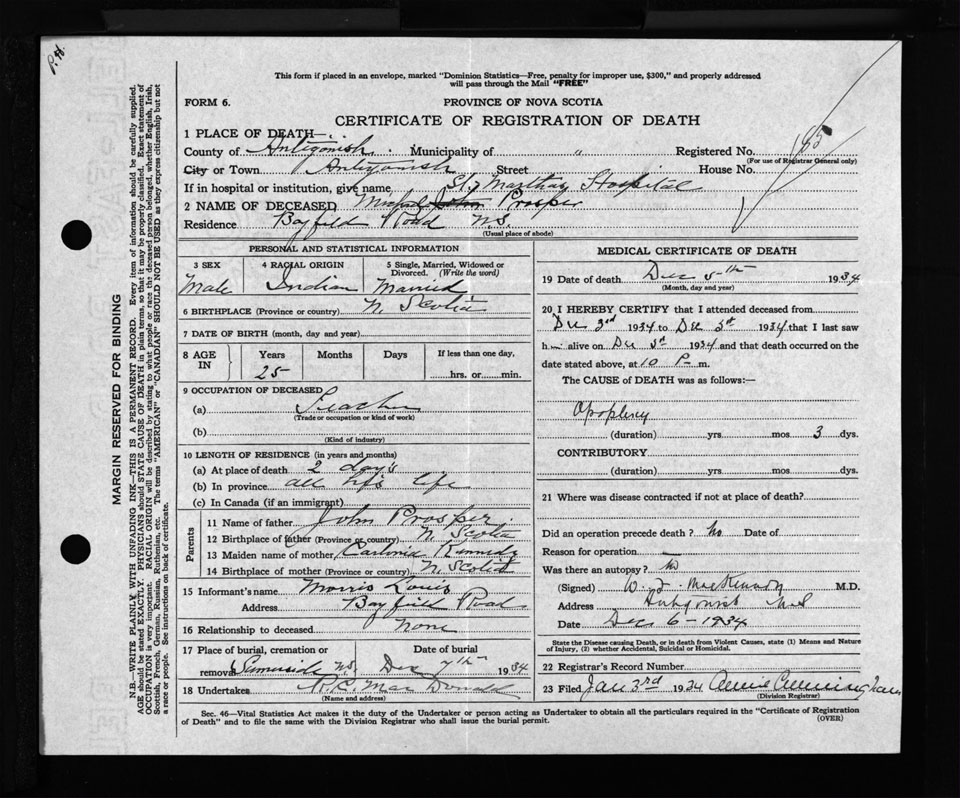 P.H.
This form if placed in an envelope, marked "Dominion Statistics—Free, penalty for improper use, $300," and properly addressed
will pass through the Mail "FREE"
FORM 6. PROVINCE OF NOVA SCOTIA
CERTIFICATE OF REGISTRATION OF DEATH
1 PLACE OF DEATH—
County of Antigonish Municipality of " Registered No. 185
(For use of Registrar General only)
City or Town Antigonish Street House No.
If in hospital or institution, give name St. Marthas Hospital
2 NAME OF DECEASED Prosper
Residence Bayfield Road N.S.
(Usual place of abode)
PERSONAL AND STATISTICAL INFORMATION
3 SEX 4 RACIAL ORIGIN 5 Single, Married, Widowed or
Divorced. (Write the word)
Male Indian Married
6 BIRTHPLACE (Province or country) N. Scotia
7 DATE OF BIRTH (month, day and year)
8 AGE IN Years Months Days If less than one day,
25 hrs. or min.
9 OCCUPATION OF DECEASED
(a)
(Trade or occupation or kind of work)
(b)
(Kind of industry)
10 LENGTH OF RESIDENCE (in years and months)
(a) At place of death 2 days
(b) In province all his life
(c) In Canada (if an immigrant)
Parents
11 Name of father John Prosper
12 Birthplace of father (Province or country) N. Scotia
13 Maiden name of mother Kennedy
14 Birthplace of mother (Province or country) N. Scotia
15 Informant's name Morris Louis
Address Bayfield Road
16 Relationship to deceased None
17 Place of burial, cremation or Date of burial
removal Summerside N.S. Dec 7th 1934
18 Undertaker R.C. MacDonald
(Name and address)
MEDICAL CERTIFICATE OF DEATH
19 Date of death Dec 5th 1934
(Month, day and year)
20 I HEREBY CERTIFY that I attended deceased from
Dec 3rd 1934 to Dec 5th 1934 that I last saw
h alive on Dec 5th 1934 and that death occurred on the
date stated above, at 10 P m.
The CAUSE of DEATH was as follows:—
Apoplexy
(duration) yrs mos 3 dys.
CONTRIBUTORY
(duration) yrs mos dys.
21 Where was disease contracted if not at place of death?
Did an operation precede death? No Date of
Reason for operation —
Was there an autopsy? No
(Signed) W. F. MacKinnon M.D.
Address Antigonish N.S
Date Dec 6 - 1934
State the Disease causing Death, or in death from Violent Causes, state (1) Means and Nature
of Injury, (2) whether Accidental, Suicidal or Homicidal.
22 Registrar's Record Number
23 Filed Jan 3rd 1934 Annie Cunningham
(Division Registrar)
Sec. 46—Vital Statistics Act makes it the duty of the Undertaker or person acting as Undertaker to obtain all the particulars required in the "Certificate of Registration
of Death" and to file the same with the Division Registrar who shall issue the burial permit. (OVER)
MARGIN RESERVED FOR BINDING
N.B.—WRITE PLAINLY, WITH UNFADING INK—THIS IS A PERMANENT RECORD. Every item of information should be carefully supplied.
AGE should be stated EXACTLY. PHYSICIANS should STATE CAUSE OF DEATH in plain terms, so that it may be properly classified. Exact statement of
OCCUPATION is very important. RACIAL ORIGIN will be described by stating to what people or race the deceased person belonged, whether English, Irish,
Scottish, French, German, Russian, Ruthenian, etc. The terms "AMERICAN" or "CANADIAN" SHOULD NOT BE USED as they express citizenship but not
a race or people. See instructions on back of certificate.